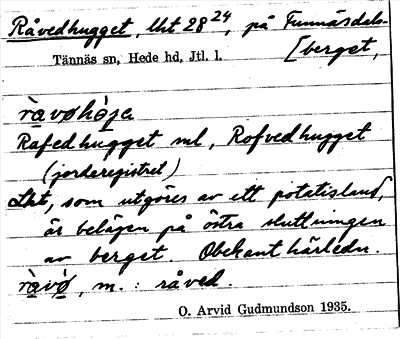 Råvedhugget, lht 28²⁴, på Funnäsdals-
[berget,
Tännäs sn, Hede hd, Jtl. l.
Rafedhugget ml, Rofvedhugget
(jorderegistret)
Lht, som utgöres av ett potatisland,
är belägen på östra sluttningen
av berget. Obekant härledn.
, m. : råved.
O. Arvid Gudmundson 1935.